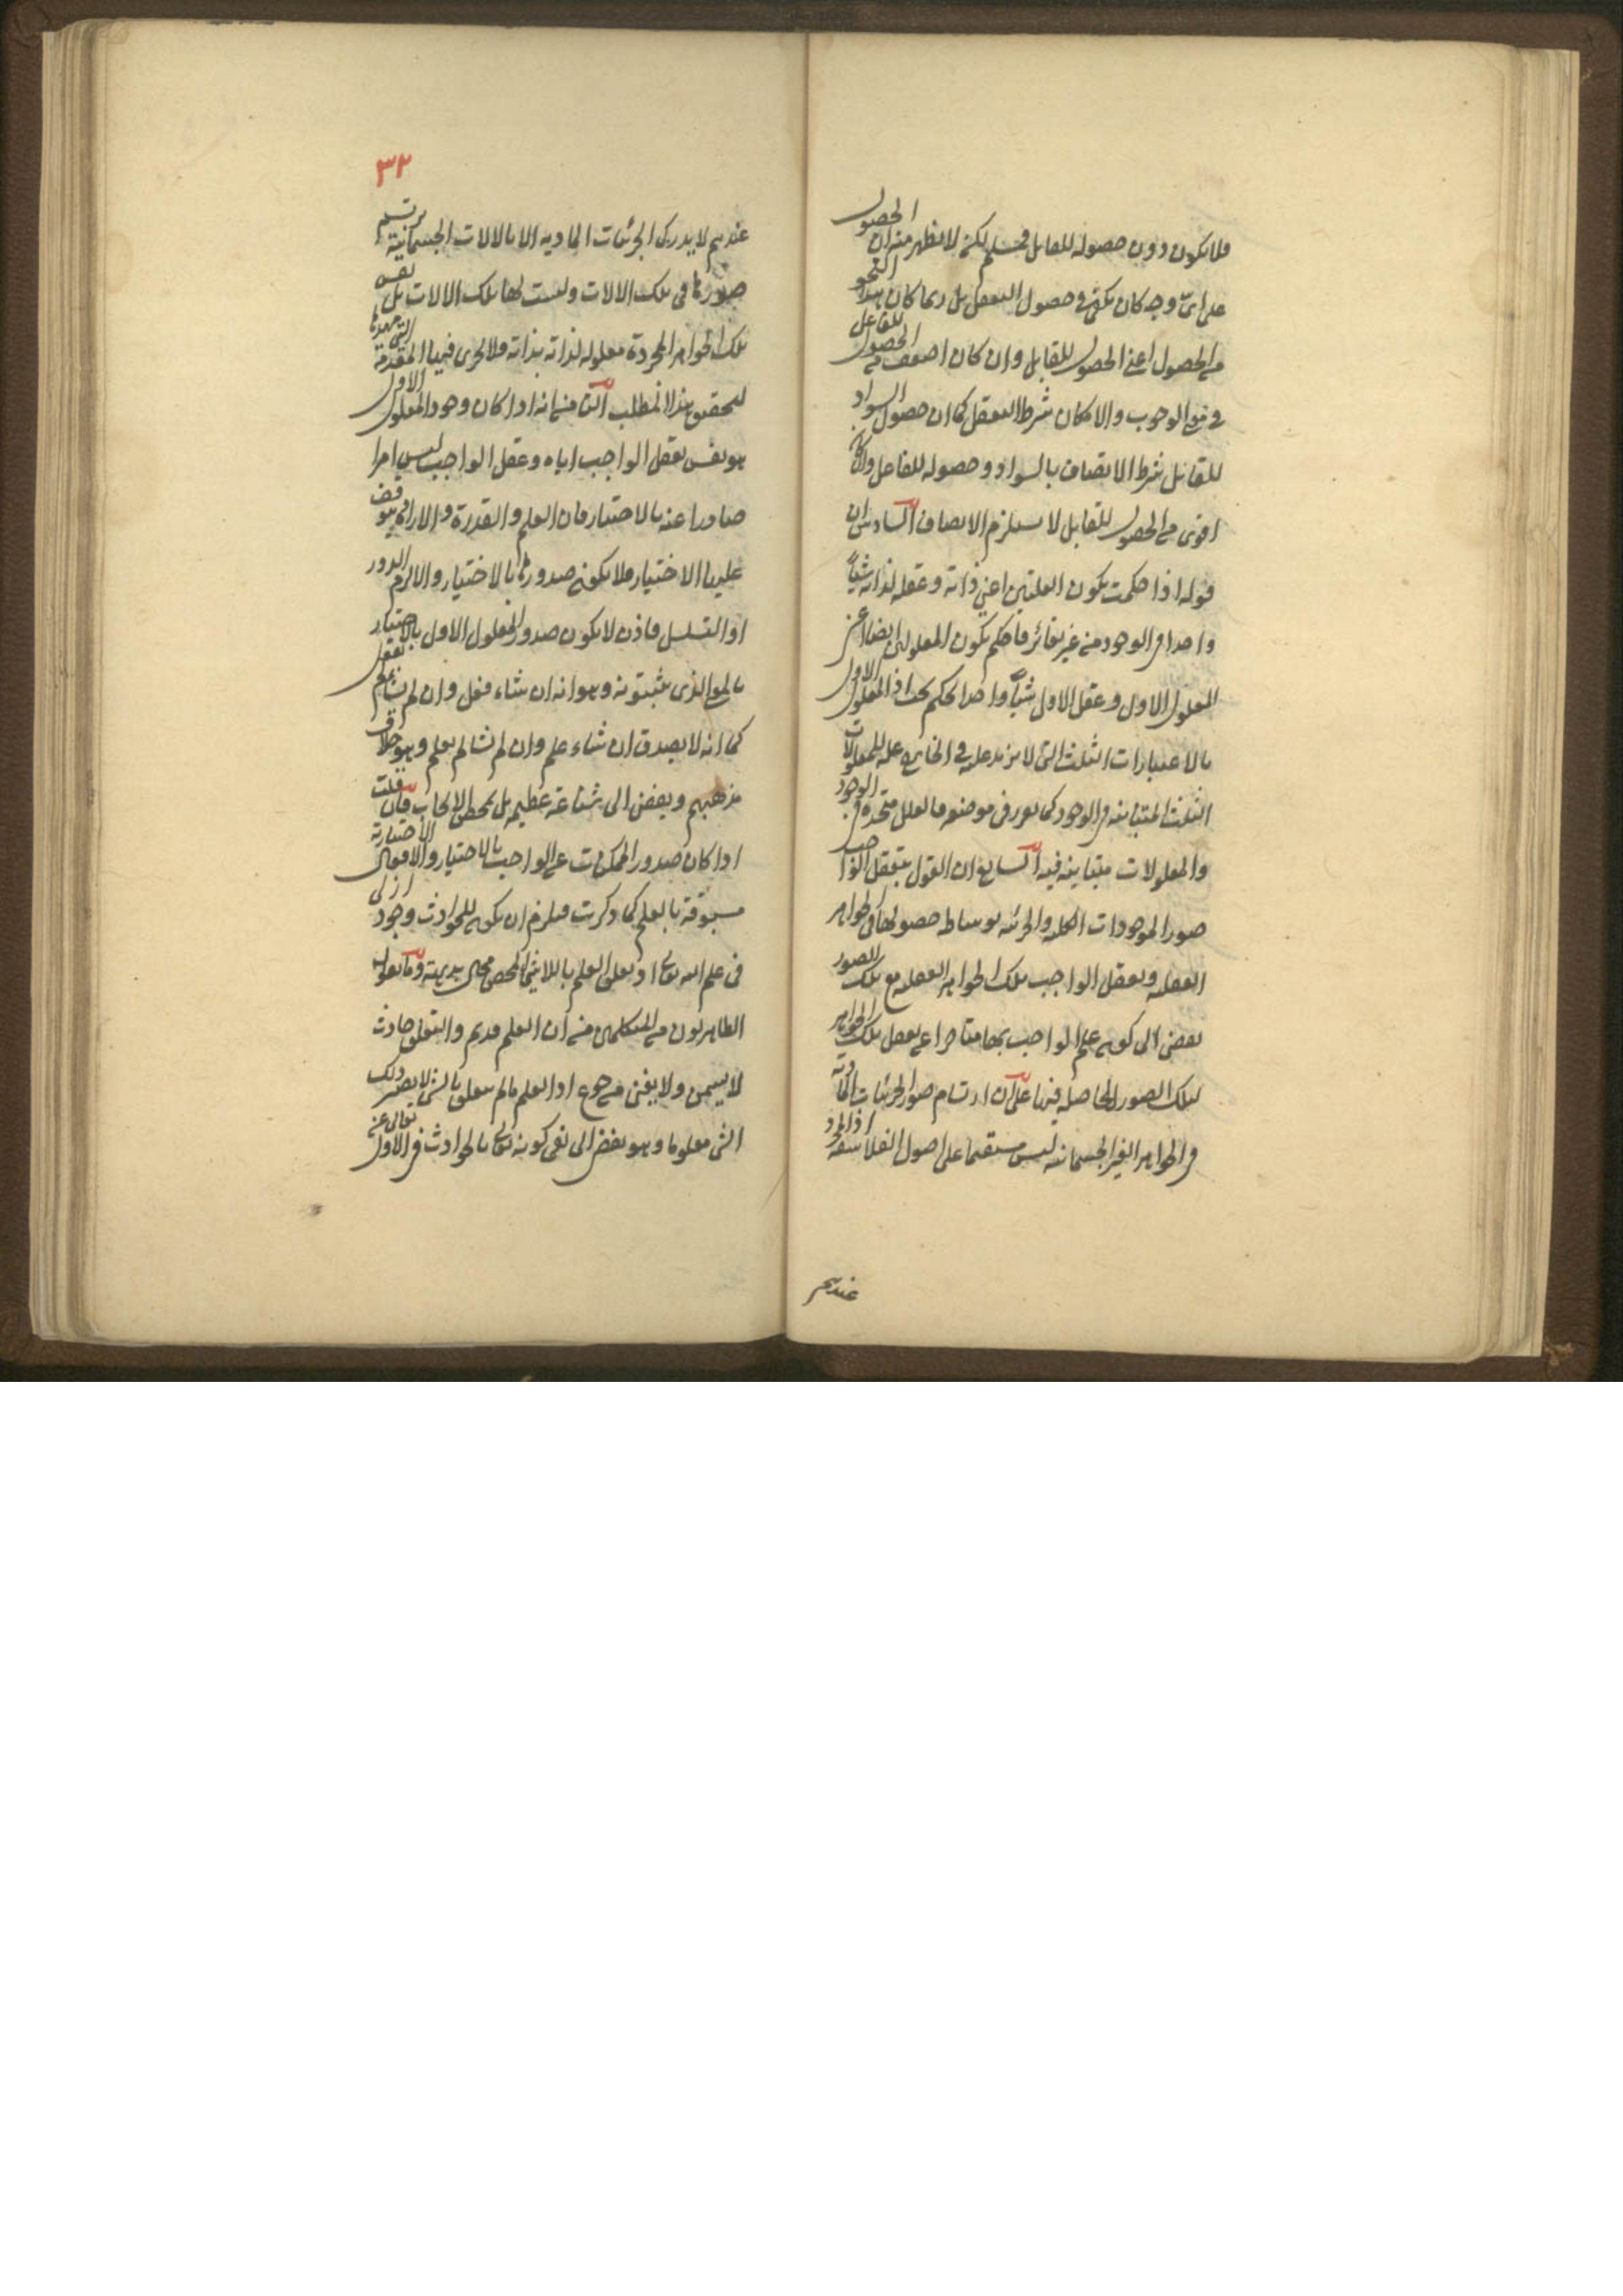 فلا يكون دون حصوله للقابل فمسلم لكنه لا يظهر منه ان الحصول
على اىّ وجه كان يكفى فى حصول التعقل بل ربما كان هذا النحو
من الحصول اعنى الحصول للقابل وان كان اضعف من الحصول للفاعل
فى الوجوب والامكان شرط التعقل كما ان حصول السواد
للقابل شرط الاتصاف بالسواد وحصوله للفاعل وان كان
اقوى من الحصول للقابل لا يستلزم الاتصاف السادس ان
قوله اذا حكمت بكون العلتين اعنى ذاته وعقله لذاته شيئاً
واحدا فى الوجود من غير تغائر فاحكم بكون المعلولين ايضا اعنى
المعلول الاول وعقل الاول شيئاً واحدا تحكم بحت اذ المعلول الاول
بالاعتبارات الثلث التى لا يزيد عليه فى الخارج علة للمعلولات
الثلث المتباينة فى الوجود كما تقرر فى موضعه فالعلل متحدة فى الوجود
والمعلولات متباينة فيه السابع ان القول بتعقل الواجب
صور الموجودات الكلية والجزئية بوساطة حصولها فى الجواهر
العقلية وتعقل الواجب تلك الجواهر العقلية مع تلك الصور
يفضى الى كون علم الواجب بها متاخرا عن تعقل تلك الجواهر
لتلك الصور الحاصلة فيها على ان ارتسام صور الجزئيات المادية
فى الجواهر الغير الجسمانية ليس مستقيما على اصول الفلاسفة اذ المجرد
عندهم
٣٢
عندهم لا يدرك الجزئيات المادية الا بالالات الجسمانية يرتسم
صورها فى تلك الالات وليست لها تلك الالات بل نفس
تلك الجواهر المجردة معلولة لذاته بذاته فلا يجرى فيها المقدمة التى مهدها
لتحقيق هذا المطلب الثامن انه اذا كان وجود المعلول الاول
هو نفس تعقل الواجب اياه وعقل الواجب ليس امرا
صادرا عنه بالاختيار فان العلم والقدرة والارادة يتوقف
عليها الاختيار فلا يكون صدورها بالاختيار والا لزم الدور
او التسلسل فاذن لا يكون صدور المعلول الاول بالاختيار
بالمعنى الذى يثبتونه وهو انه ان شاء فعل وان لم يشأ لم يفعل
كما انه لا يصدق ان شاء علم وان لم يشا لم يعلم وهو خلاف
مذهبهم ويفضى الى شناعة عظيمة بل محض الايجاب فان قلت
اذا كان صدور الممكنات عن الواجب بالاختيار والافعال الاختيارية
مسبوقة بالعلم كما ذكرت فيلزم ان يكون للحوادث وجود ازلى
فى علم الله تعالى اذ تعلق العلم باللاشئ المحض محال بديهة وما يقول
الظاهريون من المتكلمين من ان العلم قديم والتعلق حادث
لا يسمن ولا يغنى من جوع اذ العلم ما لم يتعلق بالشئ لا يصير ذلك
الشئ معلوما وهو يفضى الى نفى كونه تعالى عالما بالحوادث فى الازل تعالى عن